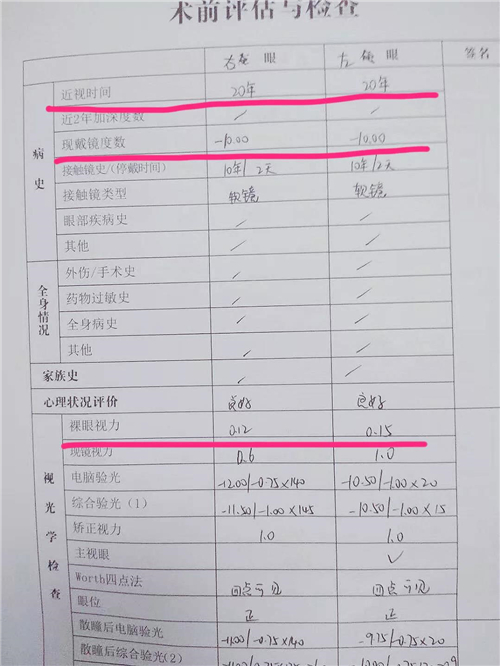 术前评估与检查
右 眼 左 眼 签名
病史
近视时间 20年 20年
近2年加深度数 / /
现戴镜度数 -10.00 -10.00
接触镜史/(停戴时间) 10年/2天 10年/2天
接触镜类型 软镜 软镜
眼部疾病史 / /
其他 / /
全身情况
外伤/手术史 / /
药物过敏史 / /
全身病史 / /
其他 / /
家族史 / /
心理状况评价 良好 良好
视光学检查
裸眼视力 0.12 0.15
现镜视力 0.6 1.0
电脑验光 -12.00/-0.75×140 -10.50/-1.00×20
综合验光(1) -11.50/-1.00×145 -10.50/-1.00×15
矫正视力 1.0 1.0
主视眼 ✓
Worth四点法 四点可见 四点可见
眼位 正 正
散瞳后电脑验光 -11.00/-0.75×140 -9.75/-0.75×20
散瞳后综合验光(2)